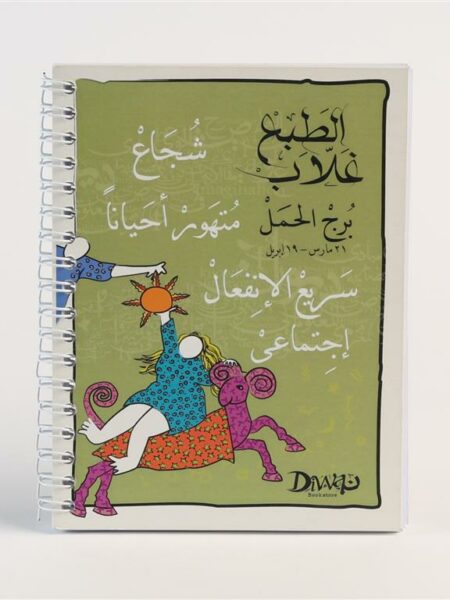 الطبع
غلّاب
شُجَاعْ
بُرْج الحَمَلْ
٢١ مارس - ١٩ إبريل
مُتهَورْ أحيَاناً
سَريْع الإنفِعَالْ
إجتِماعىْ
Diwan ديوان
Bookstore